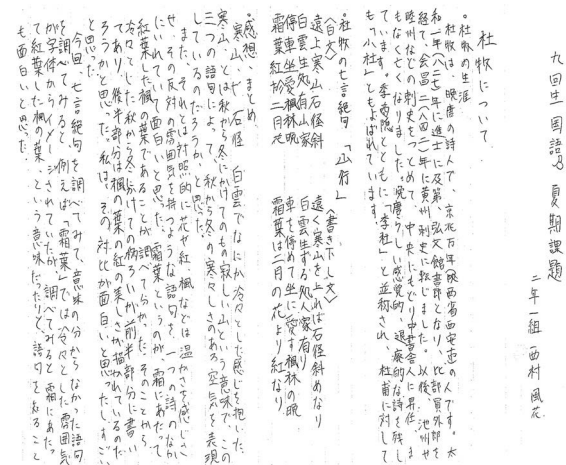 九回生 国語 夏期課題
二年一組 西村 風花
杜牧について
・杜牧の生涯
杜牧は、晩唐の詩人で、京兆万年(陝西省西安市)の人です。太
和二年(八二八)年に進士に及第、弘文館書郎となり、比部員外郎を
経て、会昌二(八四二)年に黄州刺史に転じました。以後、池州や
睦州などの刺史をつとめて、中央にもどり中書舎人に昇任、ま
もなく亡くなりました。晩唐らしい感覚的、退廃的な詩を残し
ています。李商隠とともに「李杜」と並称され、杜甫に対して
も「小杜」ともよばれています。
・杜牧の七言絶句 「山行」
〈白文〉
遠上寒山石径斜
白雲生処有人家
停車坐愛楓林晩
霜葉紅於二月花
〈書き下し文〉
遠く寒山を上れば石径斜めなり
白雲生ずる処人家有り
車を停めて坐に愛す楓林の晩
霜葉は二月の花より紅なり
・感想、まとめ
寒山とや石径、白雲でなにか冷々とした感じを抱いた。
寒山とは秋から冬にかけてのもの寂しい山という意味で、この
三つの語句によって、秋から冬の寒々しさのある空気を表現
しているのだろうか、と思った。
また、それとは対照的に花や紅、楓などは温かさを感じさ
せ、その反対の雰囲気を持つような語句を、一つの詩のなか
にいれていて面白いと思った。霜葉というのが、霜にあたって
紅葉した楓の葉であることが調べて分かった。そのことから、
冷々とした秋から冬にかけての様子が前半部分に書い
てあり、後半部分は楓の葉の紅の美しさが描かれているのだ
ろうかと思った。私は、その対比が面白いと思ったし、すごい
と思った。
今回、七言絶句を調べてみて、意味の分からなかった語句
を調べてみると、例えば「霜葉」では冷々とした雰囲気
が字体からイメージされていたが、調べてみると霜にあたっ
て紅葉した楓の葉、という意味だったりと、語句を知ること
も面白いと思った。